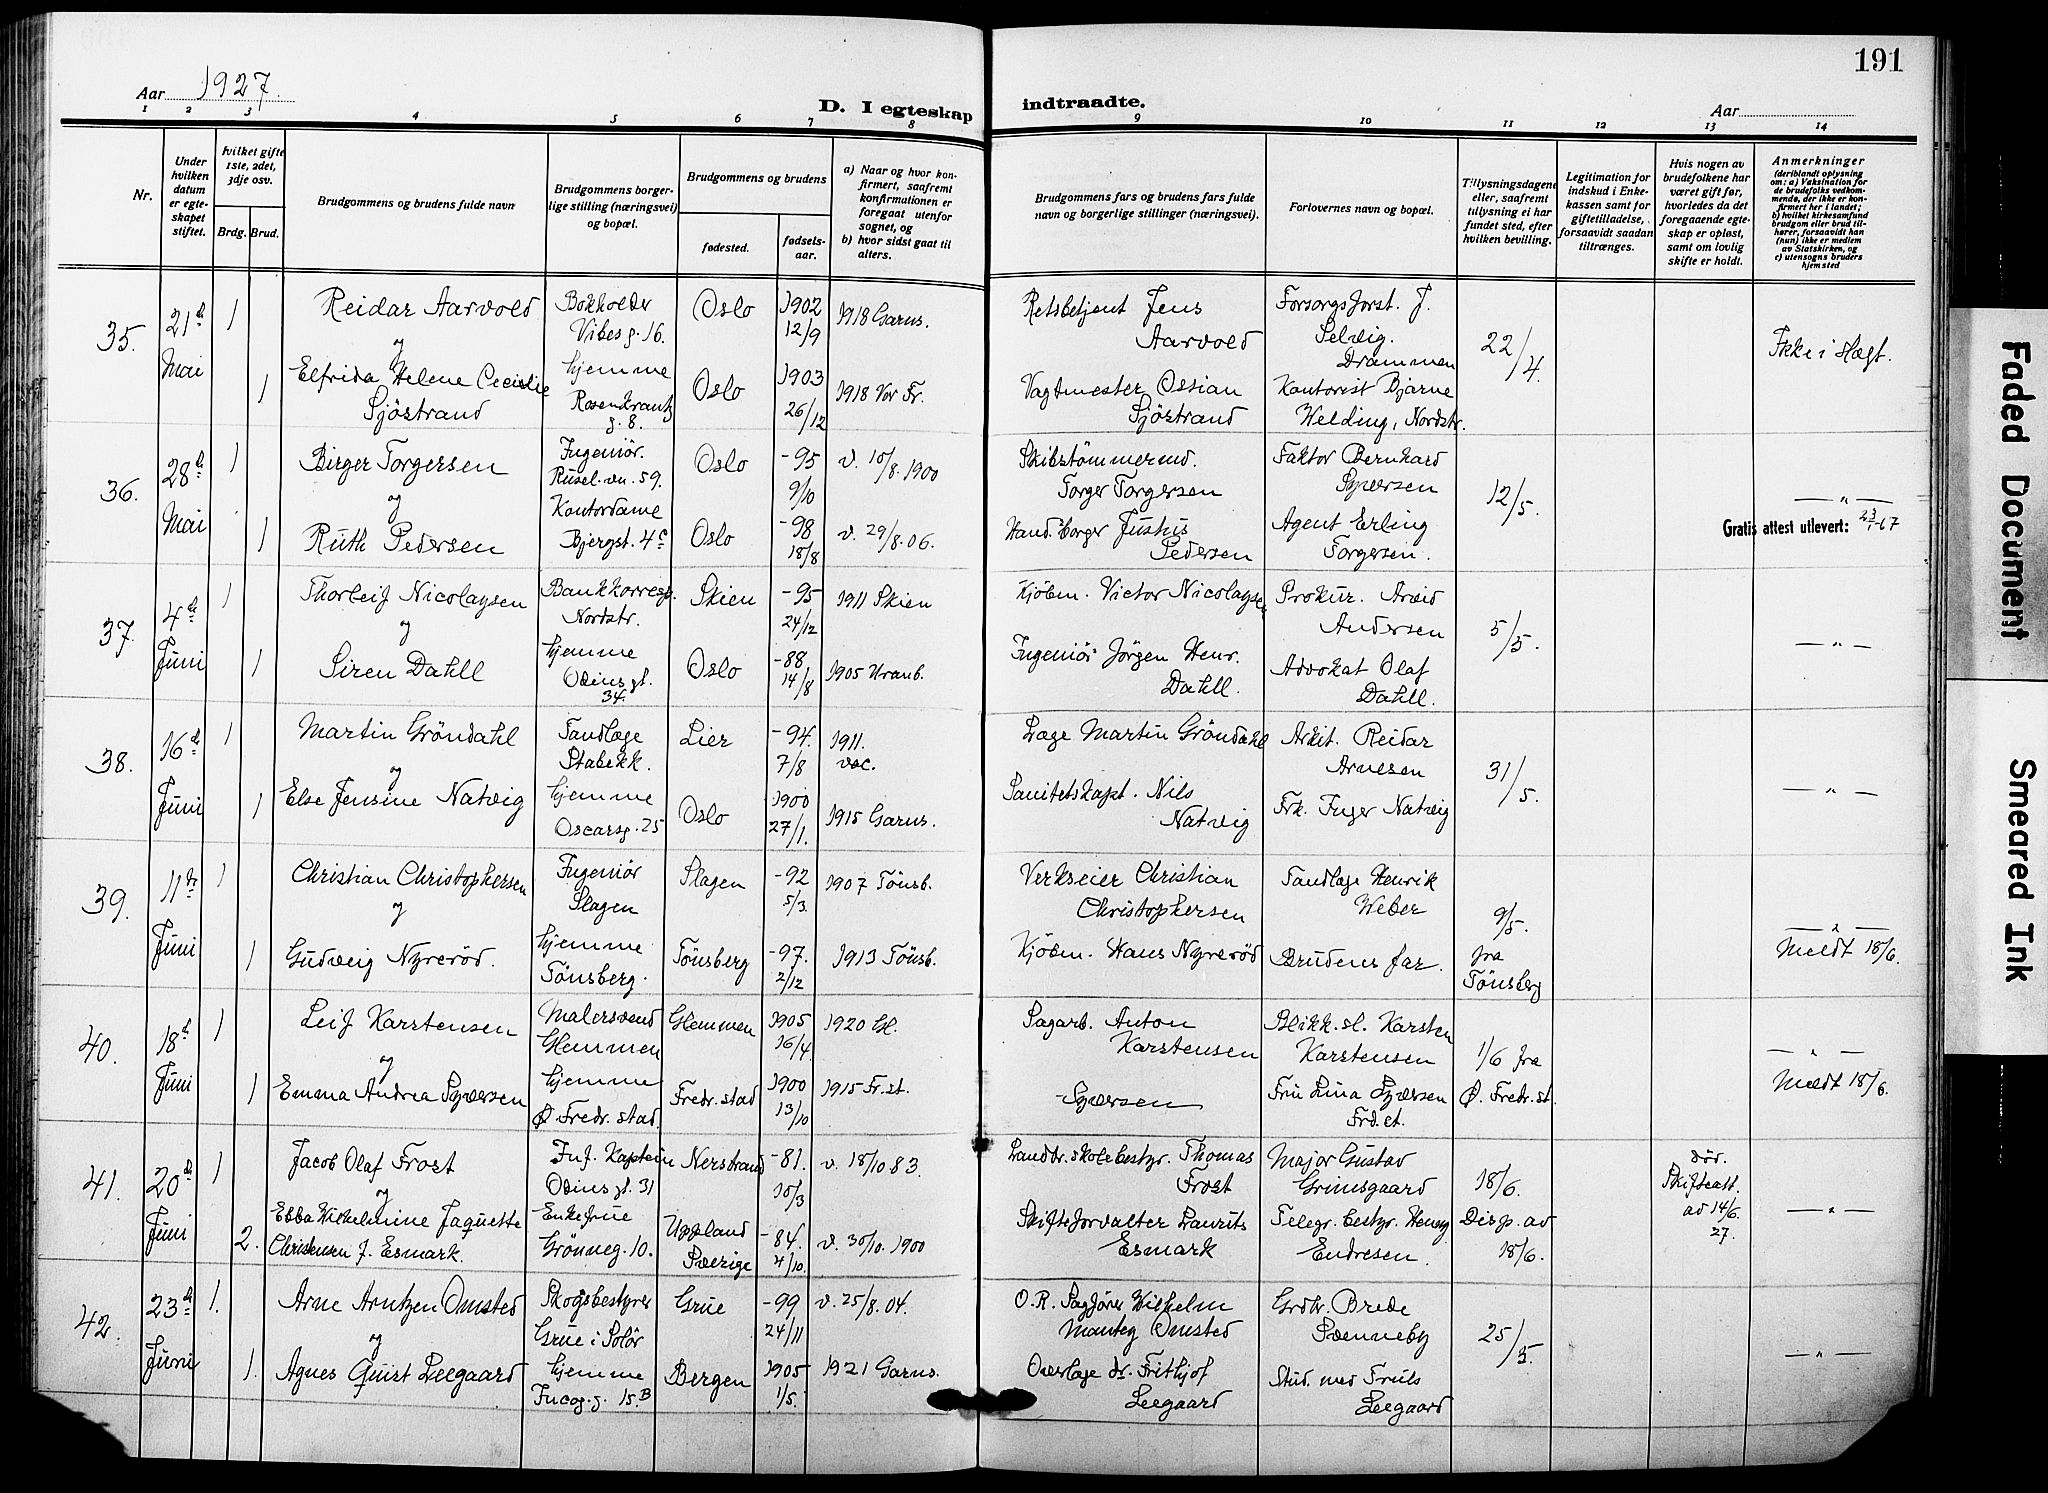 191
Aar 1927.
D. I egteskap indtraadte.
Aar
1 2 3 4 5 6 7 8 9 10 11 12 13 14
Nr.
Under hvilken datum er egteskapet stiftet.
hvilket gifte 1ste, 2det, 3dje osv.
Brdg. Brud.
Brudgommens og brudens fulde navn
Brudgommens borgerlige stilling (næringsvei) og bopæl.
Brudgommens og brudens
fødested.
fødselsaar.
a) Naar og hvor konfirmert, saafremt konfirmationen er foregaat utenfor sognet, og
b) hvor sidst gaat til alters.
Brudgommens fars og brudens fars fulde navn og borgerlige stillinger (næringsvei).
Forlovernes navn og bopæl.
Tillysningsdagene eller, saafremt tillysning ei har fundet sted, efter hvilken bevilling.
Legitimation for indskud i Enkekassen samt for giftetilladelse, forsaavidt saadan tiltrænges.
Hvis nogen av brudefolkene har været gift før, hvorledes da det foregaaende egteskap er opløst, samt om lovlig skifte er holdt.
Anmerkninger
(deriblandt oplysning om: a) Vaksination for de brudefolks vedkommende, der ikke er konfirmert her i landet; b) hvilket kirkesamfund brudgom eller brud tilhører, forsaavidt han (hun) ikke er medlem av Statskirken, og c) utensogns bruders hjemsted
35. 21de Mai 1 Reidar Aarvold Bokholder Vibesg. 16. Oslo 1902 12/9 1918 Garns. Retsbetjent Jens Aarvold Forsorgsforst. J. Selvig. Drammen 22/4. Ikke i Slægt.
og
1 Elfrida Helene Cecilie Sjöstrand hjemme Rosenkrantz g. 8. Oslo 1903 26/12 1918 Vor Fr. Vagtmester Ossian Sjöstrand Kontorist Bjarne Welding, Nordstr.
36. 28de Mai 1 Birger Torgersen Ingeniör. Rusel.vn. 59. Oslo -95 9/10 v. 10/8. 1900 Skibstömmermd. Torger Torgersen Faktor Bernhard Syversen 12/5. — " —
og
1 Ruth Pedersen Kontordame Bjergst. 4c Oslo -98 18/8 v. 29/8. 06. Hand.borger Justus Pedersen Agent Erling Torgersen. Gratis attest utlevert: 23/1-67
37. 4de Juni 1 Thorleif Nicolaysen Bankkorresp. Nordstr. Skien -95 24/12 1911 Skien Kjöbm. Victor Nicolaysen Prokur. Arvid Andersen 5/5. — " —
og
1 Siren Dahll hjemme Odins gt. 34. Oslo -88 14/8 1905 Uranb. Ingeniör Jörgen Henr. Dahll. Advokat Olaf Dahll.
38. 16de Juni 1 Martin Gröndahl Tandlæge Stabekk. Lier -94. 7/8 1911. vac. Læge Martin Gröndahl Arkit. Reidar Arnesen 31/5. — " —
og
1 Else Jensine Natvig hjemme Oscarsg. 25 Oslo 1900 27/1. 1915 Garns. Sanitetskapt. Nils Natvig Frk. Inger Natvig
39. 11te Juni 1 Christian Christophersen Ingeniör Slagen Slagen -92 5/3. 1907 Tönsb. Verkseier Christian Christophersen Tandlæge Henrik Weber 9/5. fra Tönsberg — " —
og
1 Gudveig Nyreröd. hjemme Tönsberg. Tönsberg -97. 2/12 1913 Tönsb. Kjöbm. Hans Nyreröd Brudens far. Meldt 18/6.
40. 18de Juni 1 Leif Karstensen Malersvend Glemmen Glemmen 1905 16/4. 1920 Gl. Sagarb. Anton Karstensen Blikk.sl. Karsten Karstensen 1/6 fra Ø. Fredr.st. — " —
og
1 Emma Andrea Syversen hjemme Ø. Fredr.stad. Fredr.stad 1900 13/10 1915 Fr.st. Syversen Fru Lina Syversen Frd.st. Meldt 18/6.
41. 20de Juni 1 Jacob Olaf Frost Inf. Kaptein Odins gt. 31 Nerstrand -81. 10/3 v. 18/10 83. Landbr.skolebestyr. Thomas Frost Major Gustav Grimsgaard 18/6. Disp. av 18/6. död. Skifteatt. av 14/6. 27. — " —
og
2. Ebba Wilhelmine Jaquette Christensen f. Esmark. Enkefrue Grönneg. 10. Uppland Sverige -84. 4/10. v. 30/10. 1900 Skifteforvalter Laurits Esmark Telegr. bestyr. Henry Endresen.
42. 23de Juni 1. Arne Arntzen Omsted Skogsbestyrer Grue i Solör Grue -99 24/11 v. 25/8. 04. O.R. Sagförer Wilhelm Mantey Omsted Grdbr. Brede Svenneby 25/5. — " —
og
1. Agnes Quist Leegaard hjemme Incog.g. 15.B Bergen 1905 1/5. 1921 Garns. Overlæge dr. Frithjof Leegaard Stud. med Truls Leegaard
Faded Document
Smeared Ink